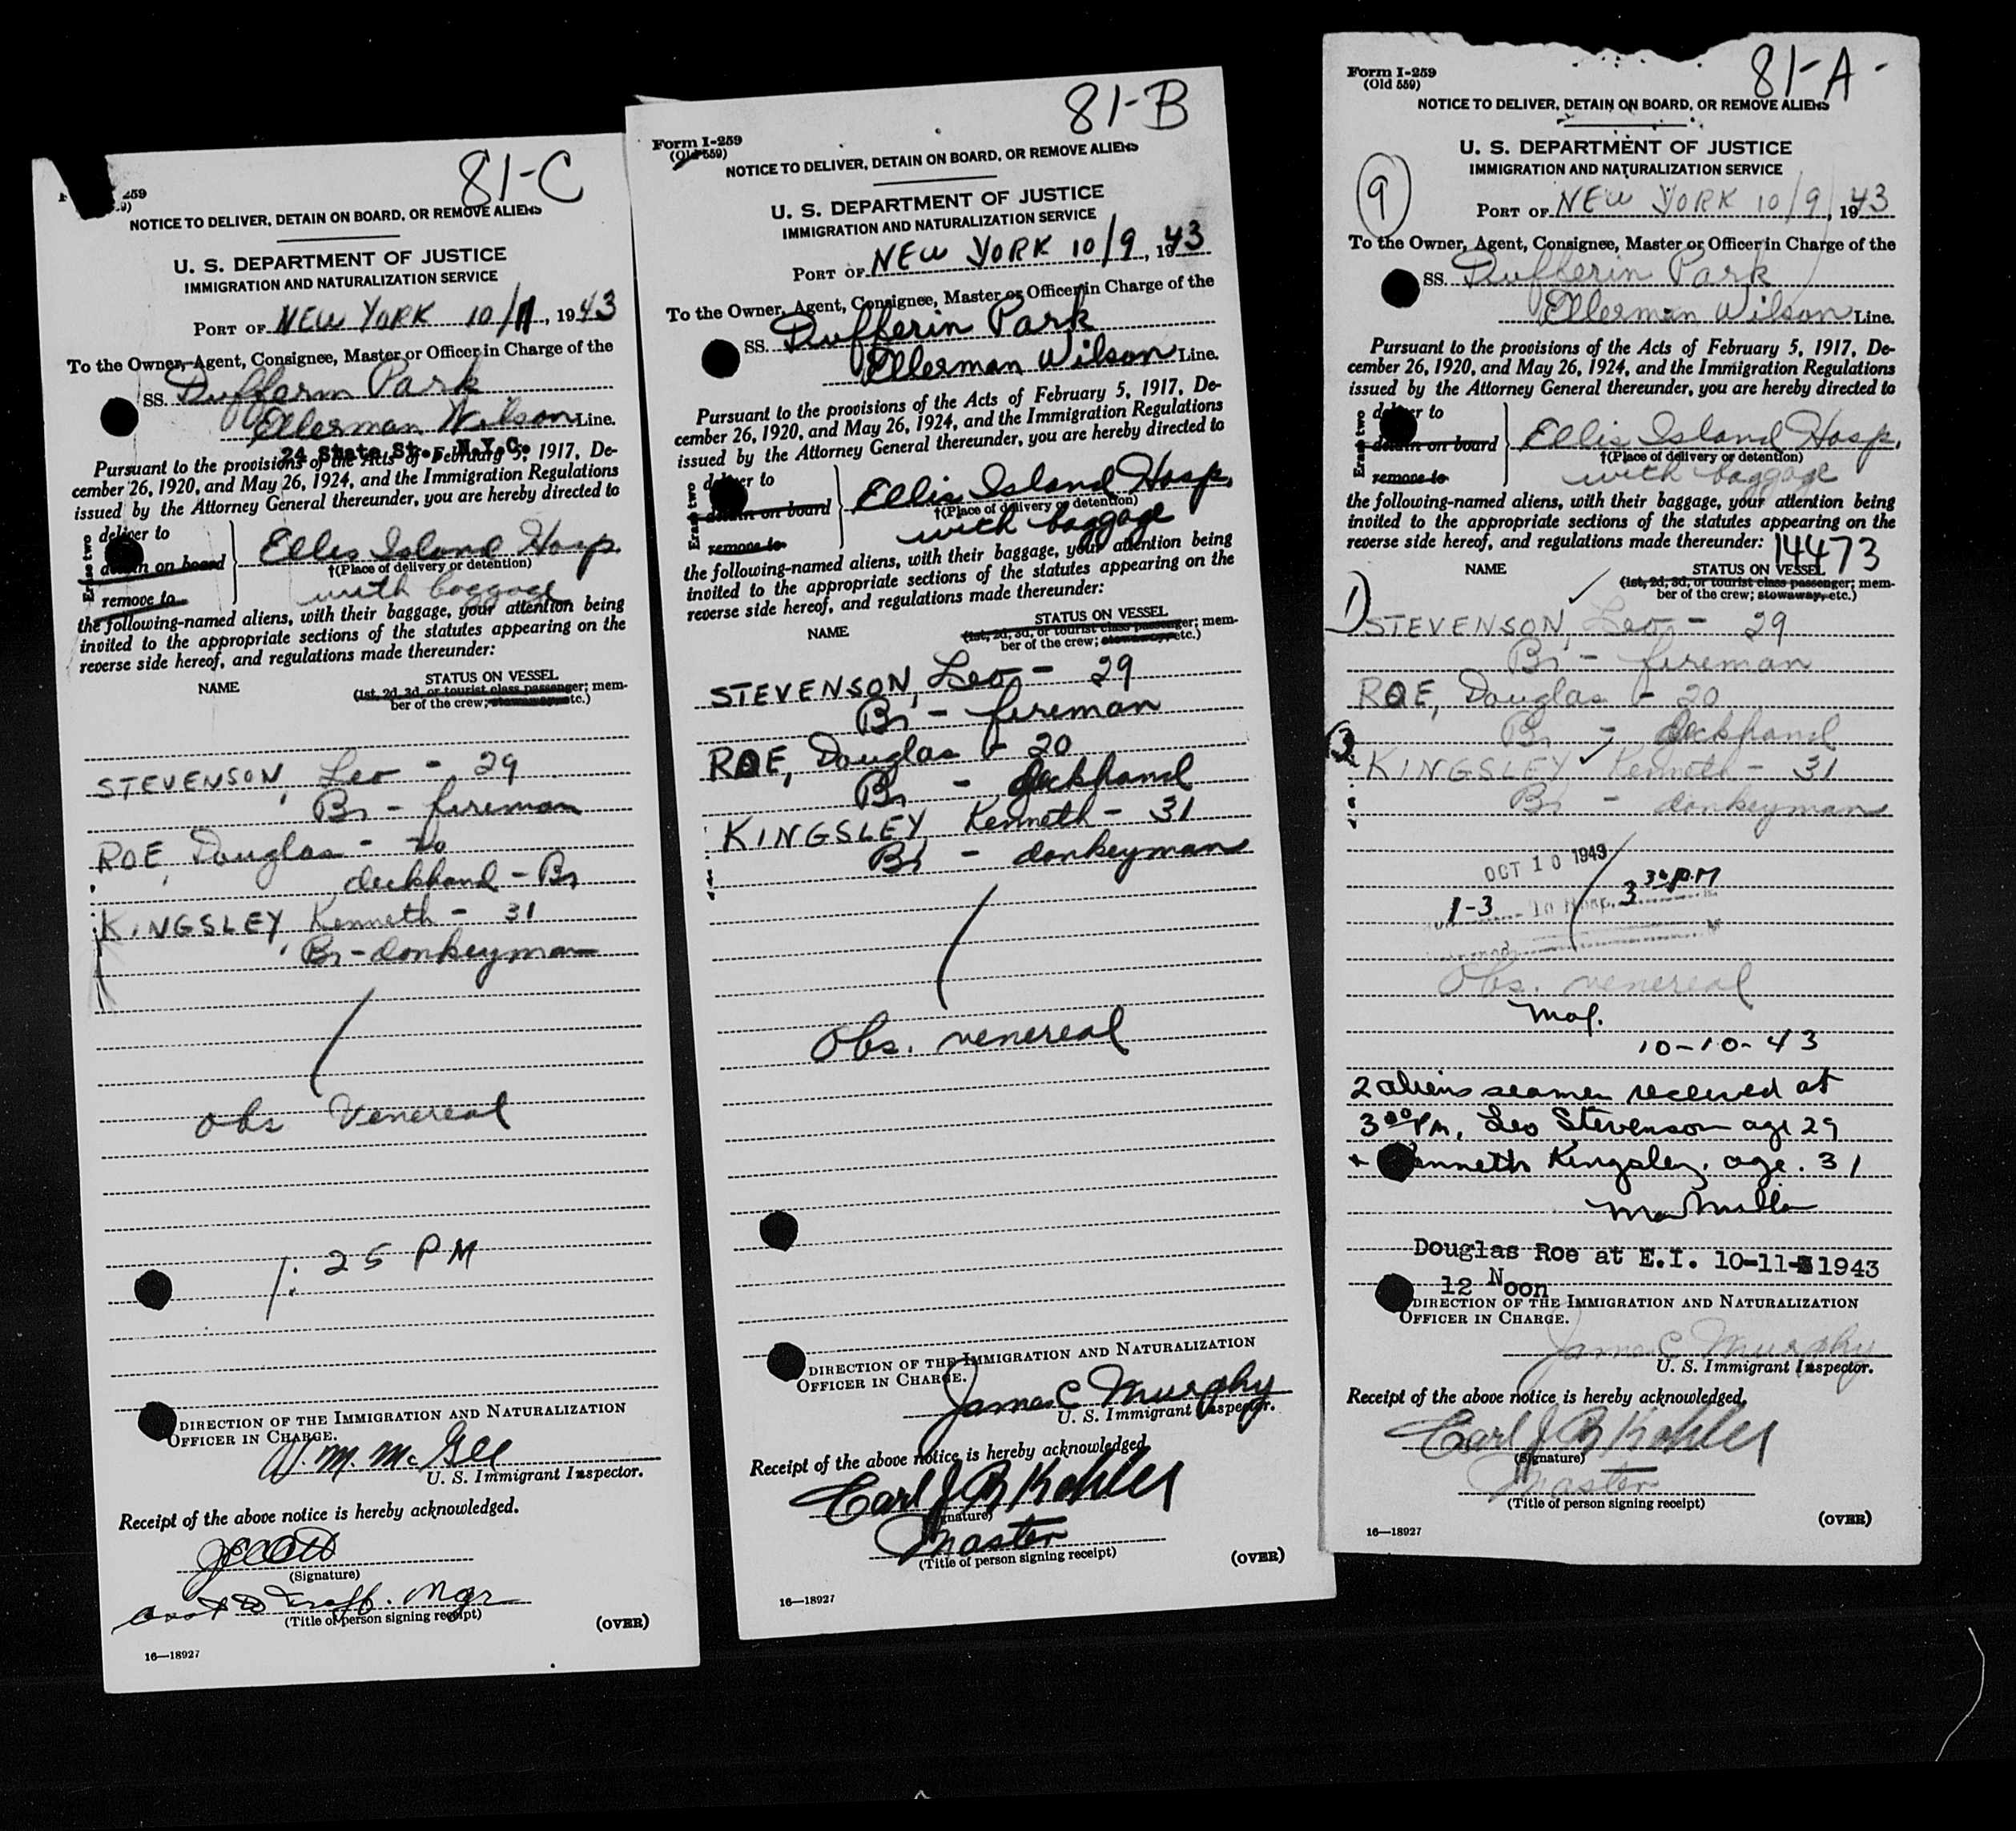 81-C
259
9)
NOTICE TO DELIVER, DETAIN ON BOARD, OR REMOVE ALIENS
U. S. DEPARTMENT OF JUSTICE
IMMIGRATION AND NATURALIZATION SERVICE
PORT OF NEW YORK 10/11, 1943
To the Owner, Agent, Consignee, Master or Officer in Charge of the
SS. Dufferin Park
Ellerman Wilson Line.
24 State St., N.Y.C.
Pursuant to the provisions of the Acts of February 5, 1917, De-
cember 26, 1920, and May 26, 1924, and the Immigration Regulations
issued by the Attorney General thereunder, you are hereby directed to
Erase two
deliver to
detain on board
remove to
Ellis Island Hosp.
†(Place of delivery or detention)
with baggage
the following-named aliens, with their baggage, your attention being
invited to the appropriate sections of the statutes appearing on the
reverse side hereof, and regulations made thereunder:
NAME
STATUS ON VESSEL
(1st, 2d, 3d, or tourist class passenger; mem-
ber of the crew; stowaway, etc.)
STEVENSON, Leo - 29
Br - fireman
ROE, Douglas - 20
deckhand - Br
KINGSLEY, Kenneth - 31
Br - donkeyman
obs Venereal
1:25 PM
DIRECTION OF THE IMMIGRATION AND NATURALIZATION
OFFICER IN CHARGE.
W. M. McGee
U. S. Immigrant Inspector.
Receipt of the above notice is hereby acknowledged.
(Signature)
Traff. Mgr
(Title of person signing receipt)
(OVER)
16—18927
81-B
Form I-259
(Old 559)
NOTICE TO DELIVER, DETAIN ON BOARD, OR REMOVE ALIENS
U. S. DEPARTMENT OF JUSTICE
IMMIGRATION AND NATURALIZATION SERVICE
PORT OF NEW YORK 10/9, 1943
To the Owner, Agent, Consignee, Master or Officer in Charge of the
SS. Dufferin Park
Ellerman Wilson Line.
Pursuant to the provisions of the Acts of February 5, 1917, De-
cember 26, 1920, and May 26, 1924, and the Immigration Regulations
issued by the Attorney General thereunder, you are hereby directed to
Erase two
deliver to
detain on board
remove to
Ellis Island Hosp.
†(Place of delivery or detention)
with baggage
the following-named aliens, with their baggage, your attention being
invited to the appropriate sections of the statutes appearing on the
reverse side hereof, and regulations made thereunder:
NAME
STATUS ON VESSEL
(1st, 2d, 3d, or tourist class passenger; mem-
ber of the crew; stowaway, etc.)
STEVENSON, Leo - 29
Br - fireman
ROE, Douglas - 20
Br - deckhand
KINGSLEY, Kenneth - 31
Br - donkeyman
Obs. venereal
DIRECTION OF THE IMMIGRATION AND NATURALIZATION
OFFICER IN CHARGE.
James C Murphy
U. S. Immigrant Inspector.
Receipt of the above notice is hereby acknowledged.
Carl J B Kohler
(Signature)
Master
(Title of person signing receipt)
(OVER)
16—18927
81-A-
Form I-259
(Old 559)
NOTICE TO DELIVER, DETAIN ON BOARD, OR REMOVE ALIENS
U. S. DEPARTMENT OF JUSTICE
IMMIGRATION AND NATURALIZATION SERVICE
9
PORT OF NEW YORK 10/9, 1943
To the Owner, Agent, Consignee, Master or Officer in Charge of the
SS. Dufferin Park
Ellerman Wilson Line.
Pursuant to the provisions of the Acts of February 5, 1917, De-
cember 26, 1920, and May 26, 1924, and the Immigration Regulations
issued by the Attorney General thereunder, you are hereby directed to
Erase two
deliver to
detain on board
remove to
Ellis Island Hosp.
†(Place of delivery or detention)
with baggage
the following-named aliens, with their baggage, your attention being
invited to the appropriate sections of the statutes appearing on the
reverse side hereof, and regulations made thereunder:
14473
NAME
STATUS ON VESSEL
(1st, 2d, 3d, or tourist class passenger; mem-
ber of the crew; stowaway, etc.)
1) STEVENSON, Leo - 29
Br - fireman
ROE, Douglas - 20
Br - deckhand
3 KINGSLEY Kenneth - 31
Br - donkeyman
OCT 10 1943
1-3 To Hosp. 3 30 P.M
Obs. venereal
10-10-43
2 aliens seamen received at
3 00 PM, Leo Stevenson age 29
+ Kenneth Kingsley, age. 31
Douglas Roe at E.I. 10-11-1943
12 Noon
DIRECTION OF THE IMMIGRATION AND NATURALIZATION
OFFICER IN CHARGE.
James C Murphy
U. S. Immigrant Inspector.
Receipt of the above notice is hereby acknowledged.
Carl J B Kohler
(Signature)
Master
(Title of person signing receipt)
(OVER)
16—18927